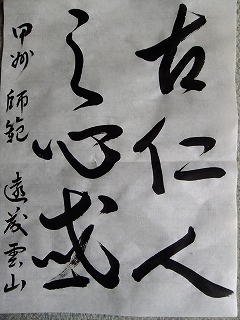 古仁人
之心或
甲州 師範 遠藤雲山